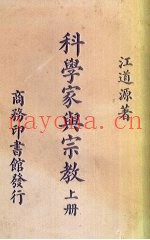 江道源著
科學家與宗教上册
商務印書館發行
nayona.cn